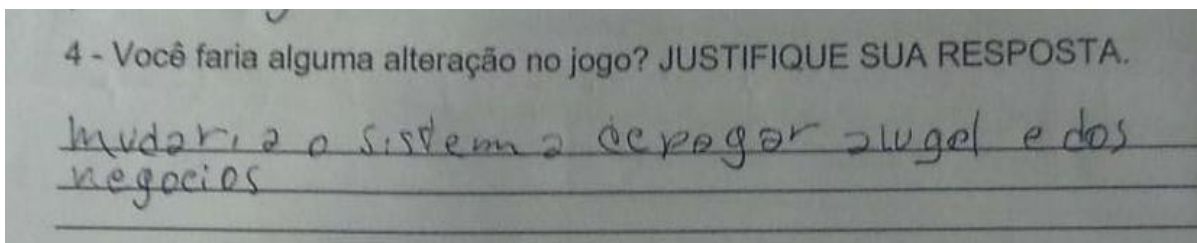 4 - Você faria alguma alteração no jogo? JUSTIFIQUE SUA RESPOSTA.
Mudaria o sistema de pagar alugel e dos
negocios